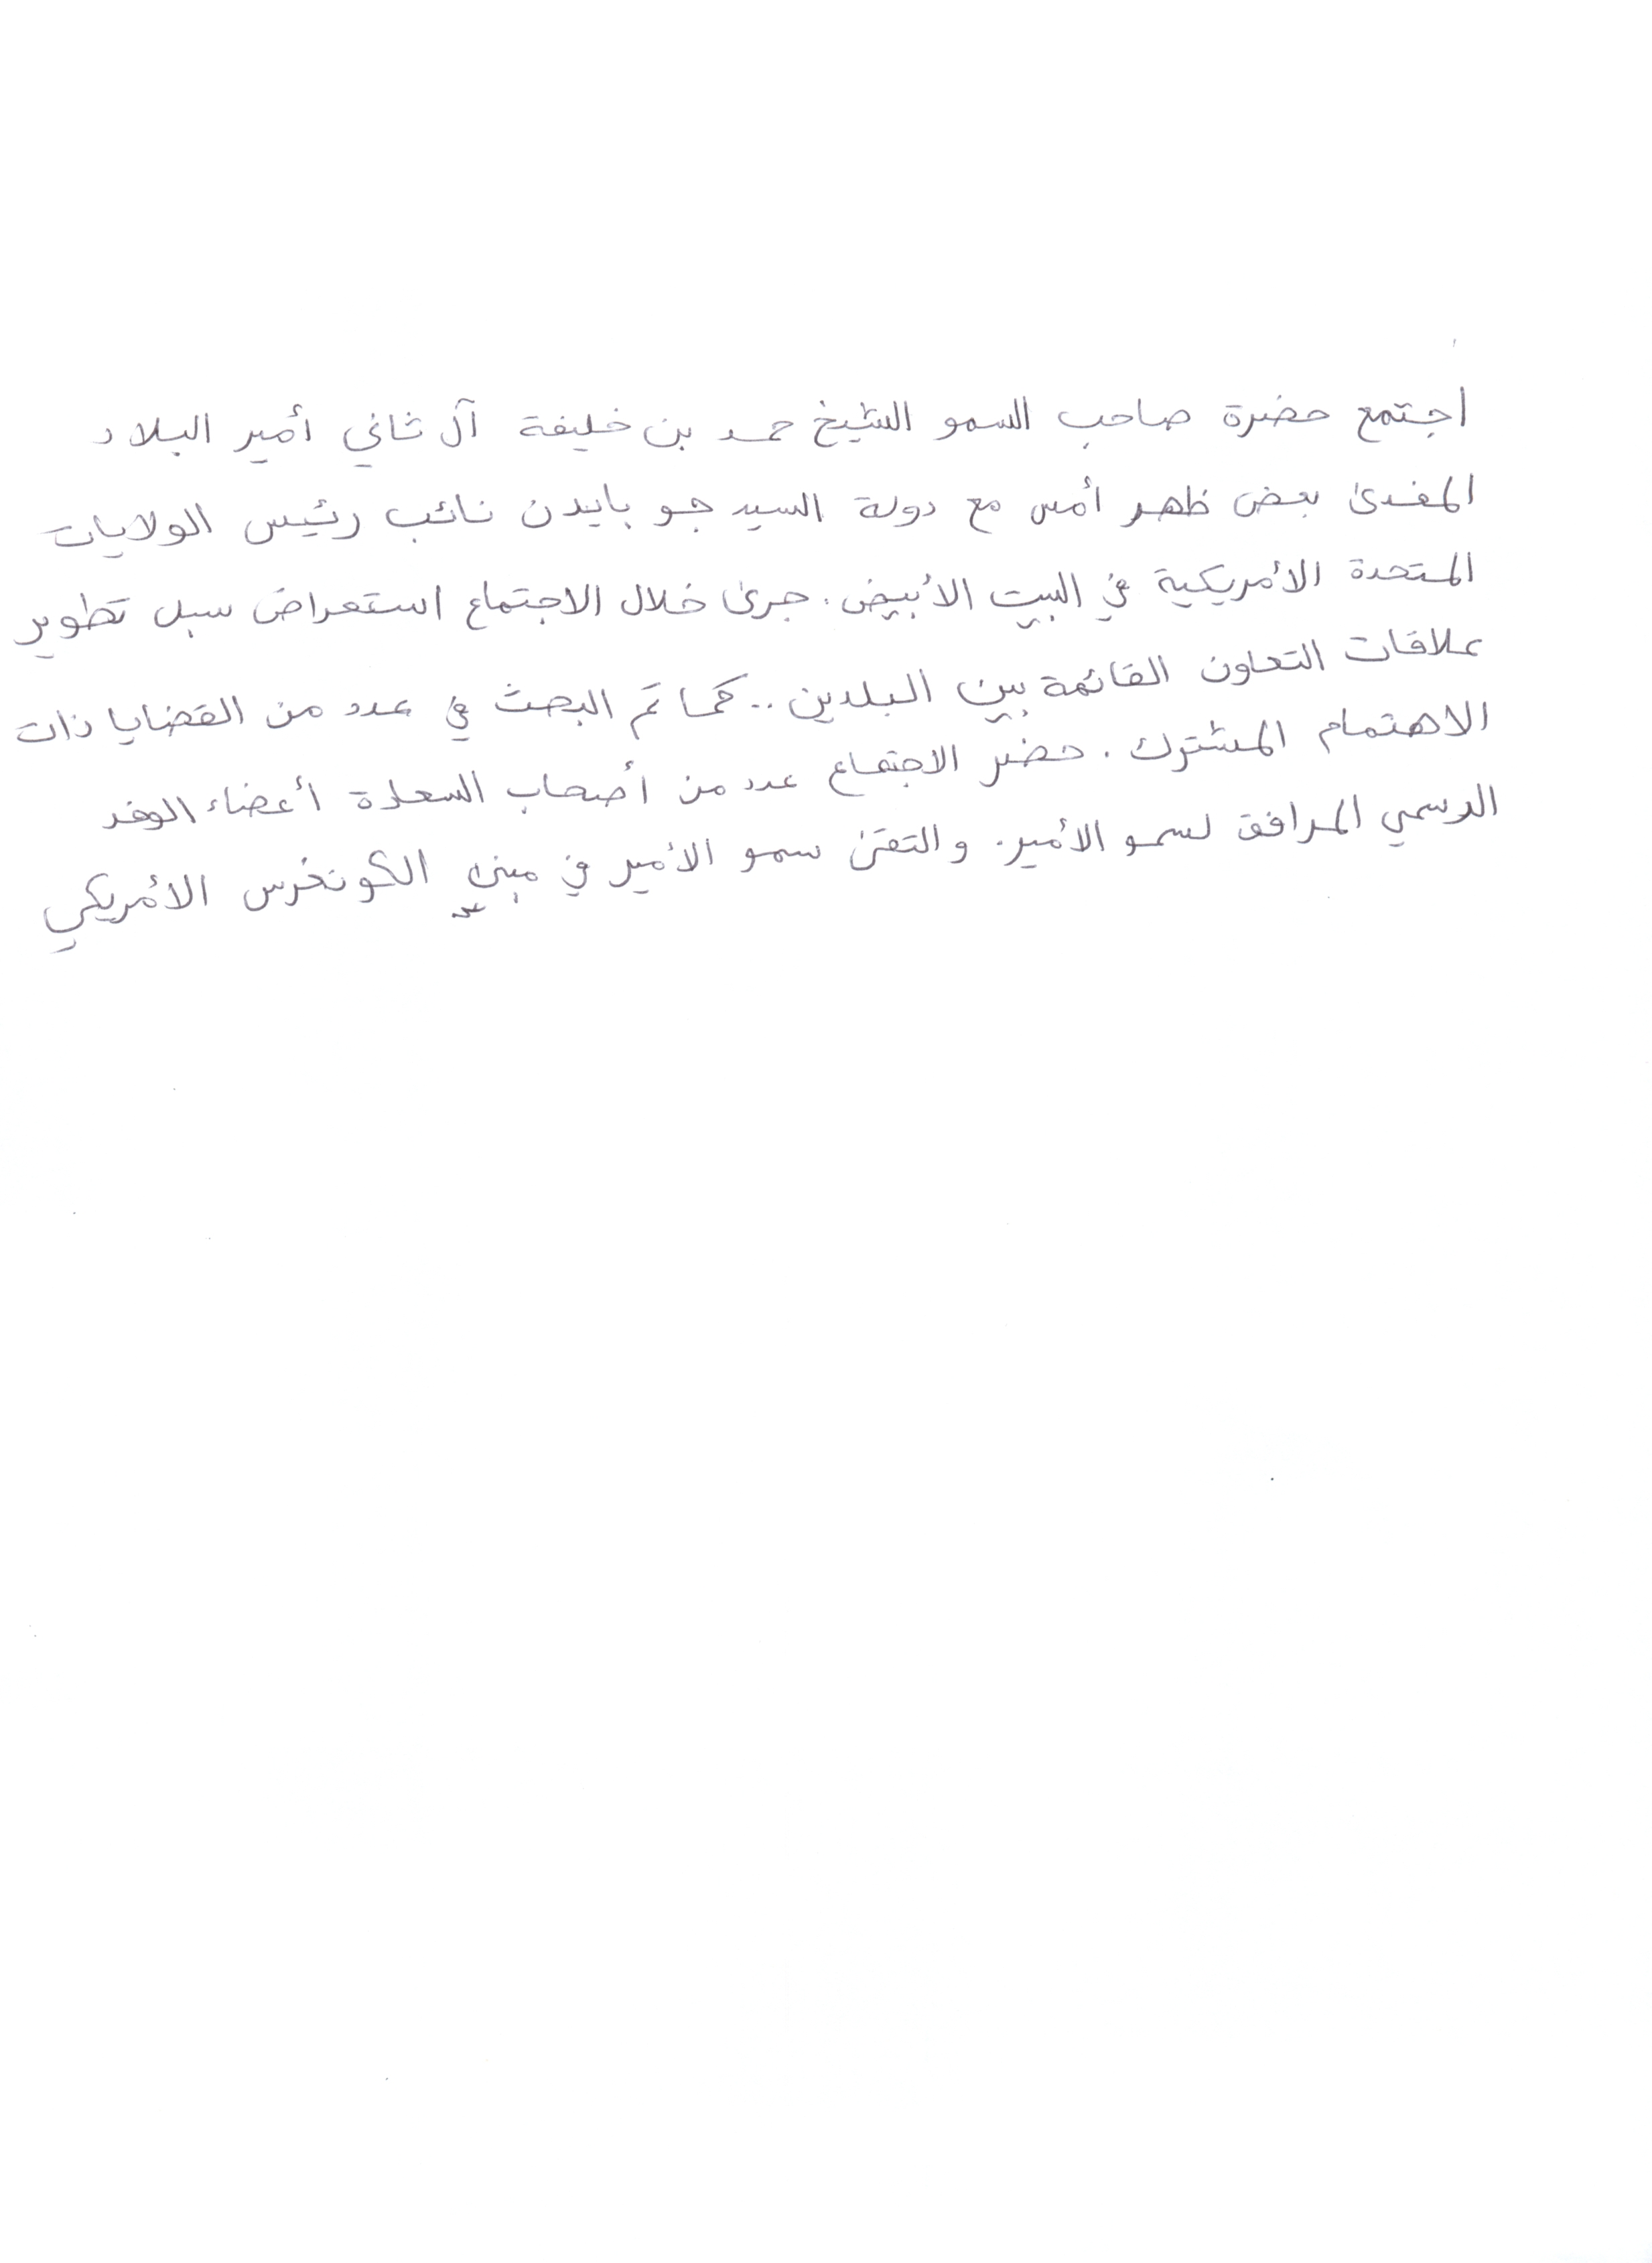 اجتمع حضرة صاحب السمو الشيخ حمد بن خليفة آل ثاني أمير البلاد
المفدى بعض ظهر أمس مع دولة السيد جو بايدن نائب رئيس الولايات
المتحدة الأمريكية في البيت الأبيض. جرى خلال الاجتماع استعراض سبل تطوير
علاقات التعاون القائمة بين البلدين .. كما تم البحث في عدد من القضايا ذات
الاهتمام المشترك . حضر الاجتماع عدد من أصحاب السعادة أعضاء الوفد
الرسمي المرافق لسمو الأمير. والتقى سمو الأمير في مبنى الكونغرس الأمريكي